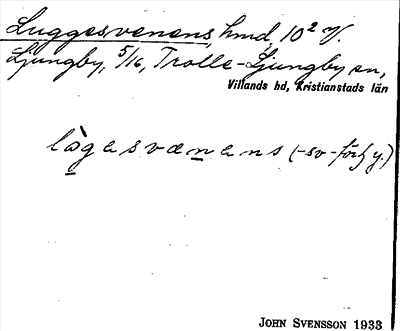 Luggesvenens, hmd, 10² V.
Ljungby, 5/16, Trolle-Ljungby sn,
Villands hd, Kristianstads län
lågesvænens (-sv- förb y.)
JOHN SVENSSON 1933